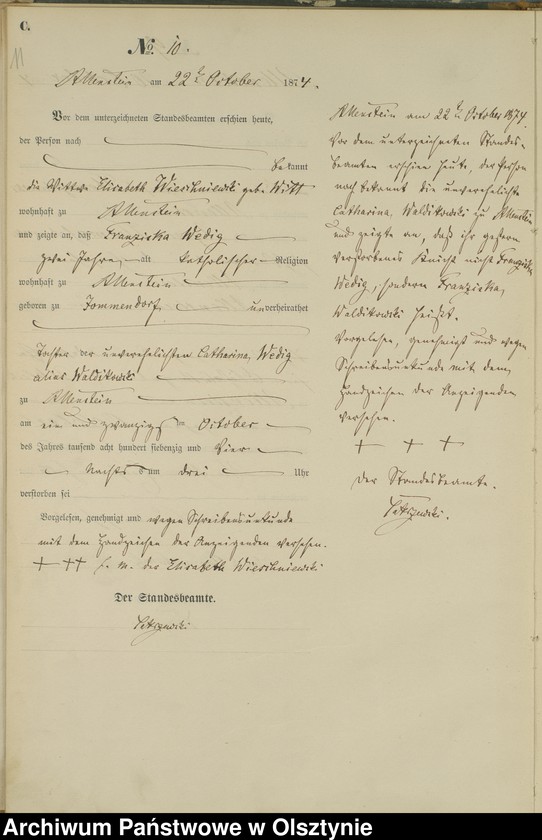 C.
11
No. 10.
Allenstein am 22ten October 1874.
Vor dem unterzeichneten Standesbeamten erschien heute,
der Person nach
bekannt
die Wittwe Elisabeth Wieschniewski geb. Witt
wohnhaft zu Allenstein
und zeigte an, daß Franziska Wedig
zwei Jahre alt Catholischer Religion
wohnhaft zu Allenstein
geboren zu Jommendorf unverheirathet
Tochter der unverehelichten Catharina Wedig
alias Waldikowski
zu Allenstein
am ein und zwanzigsten October
des Jahres tausend acht hundert siebenzig und vier
Nachts um drei Uhr
verstorben sei
Vorgelesen, genehmigt und wegen Schreibensunkunde
mit dem Handzeichen der Anzeigenden versehen.
+ ++ H. z. der Elisabeth Wieschniewski
Der Standesbeamte.
Allenstein am 22ten October 1874.
Vor dem unterzeichneten Standes-
beamten erschien heute, der Person
nach bekannt die unverehelichte
Catharina Waldikowski zu Allenstein
und zeigte an, daß ihr gestern
verstorbenes Kind nicht Franziska
Wedig, sondern Franziska,
Waldikowski heißt.
Vorgelesen, genehmigt und wegen
Schreibensunkunde mit dem
Handzeichen der Anzeigenden
versehen.
+ + +
Der Standesbeamte.
Archiwum Państwowe w Olsztynie